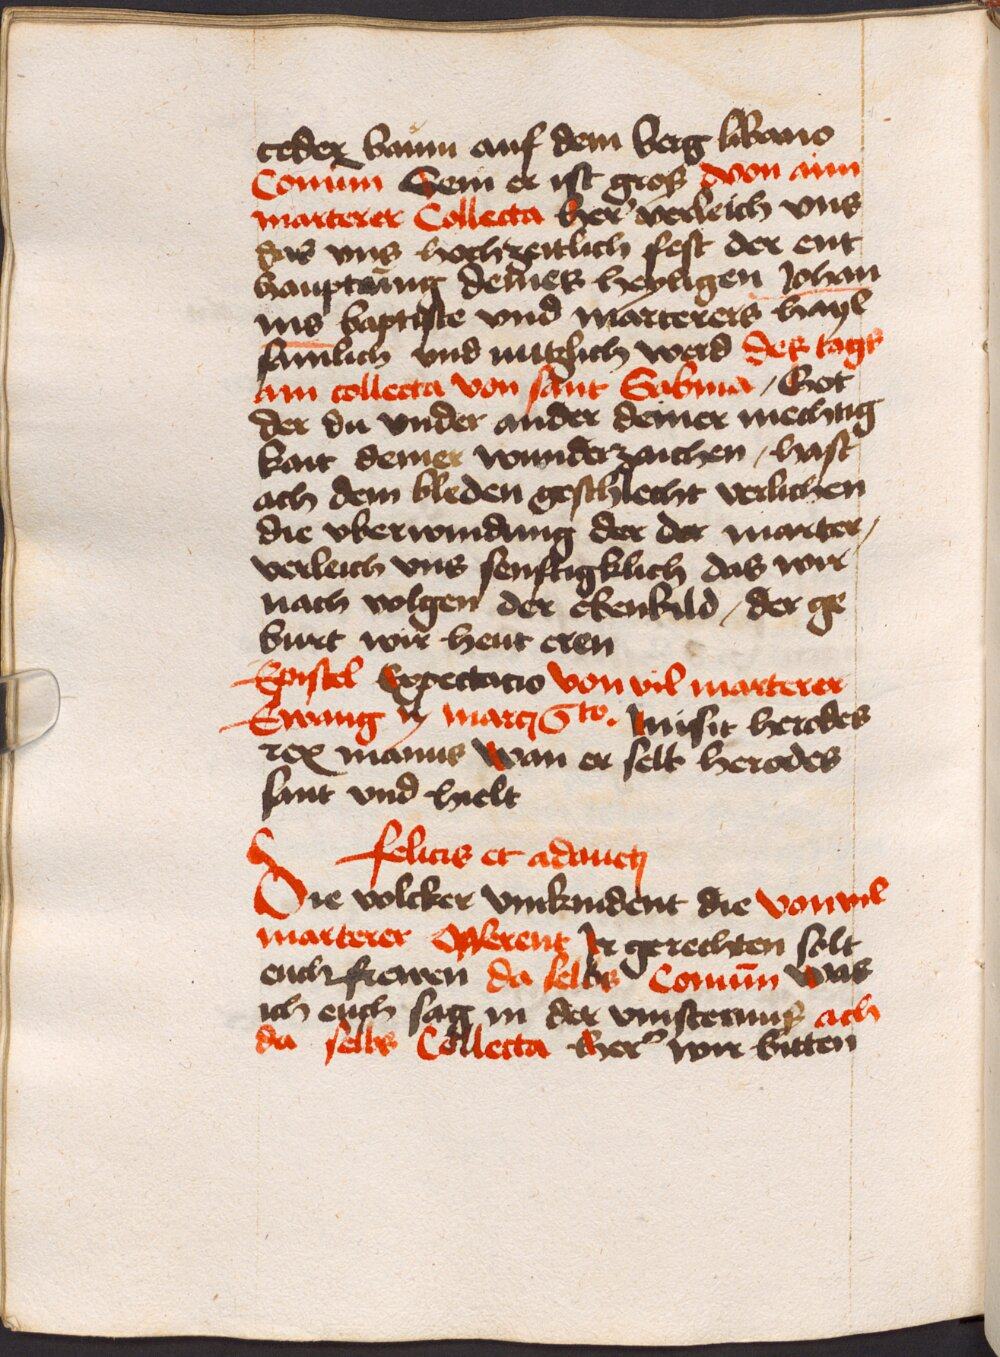 ceder baum auf dem berg libano
Comun Sein er ist groß von aim
marterer Collecta Her verleich vns
das vns hochzeitlich fest der ent
hauptung deines heyligen Johan
nis baptiste vnd marterers hayl
samlich vnd nutzlich werd des tags
ain collecta von sant Sabina / Got
der du vnder ander deiner mechtig
kait deiner wunderzaichen / hast
ach dem bleden geschlecht verlichen
die vberwindung der der marter /
verleich vns senftigklich das wir
nach volgen der ebenbild / der ge
burt wir heut eren
Epistel Expectacio von vil marterer
Ewang marci 6to. misit herodes
rex manus Wan er selb herodes
sant vnd hielt
felicis et adaucti
Die volcker verkundent die von vil
marterer Offerent Ir gerechten solt
euch frewen da selbs Comun Was
ich euch sag in der vinsternuß ach
da selbs Collecta Her wir bitten